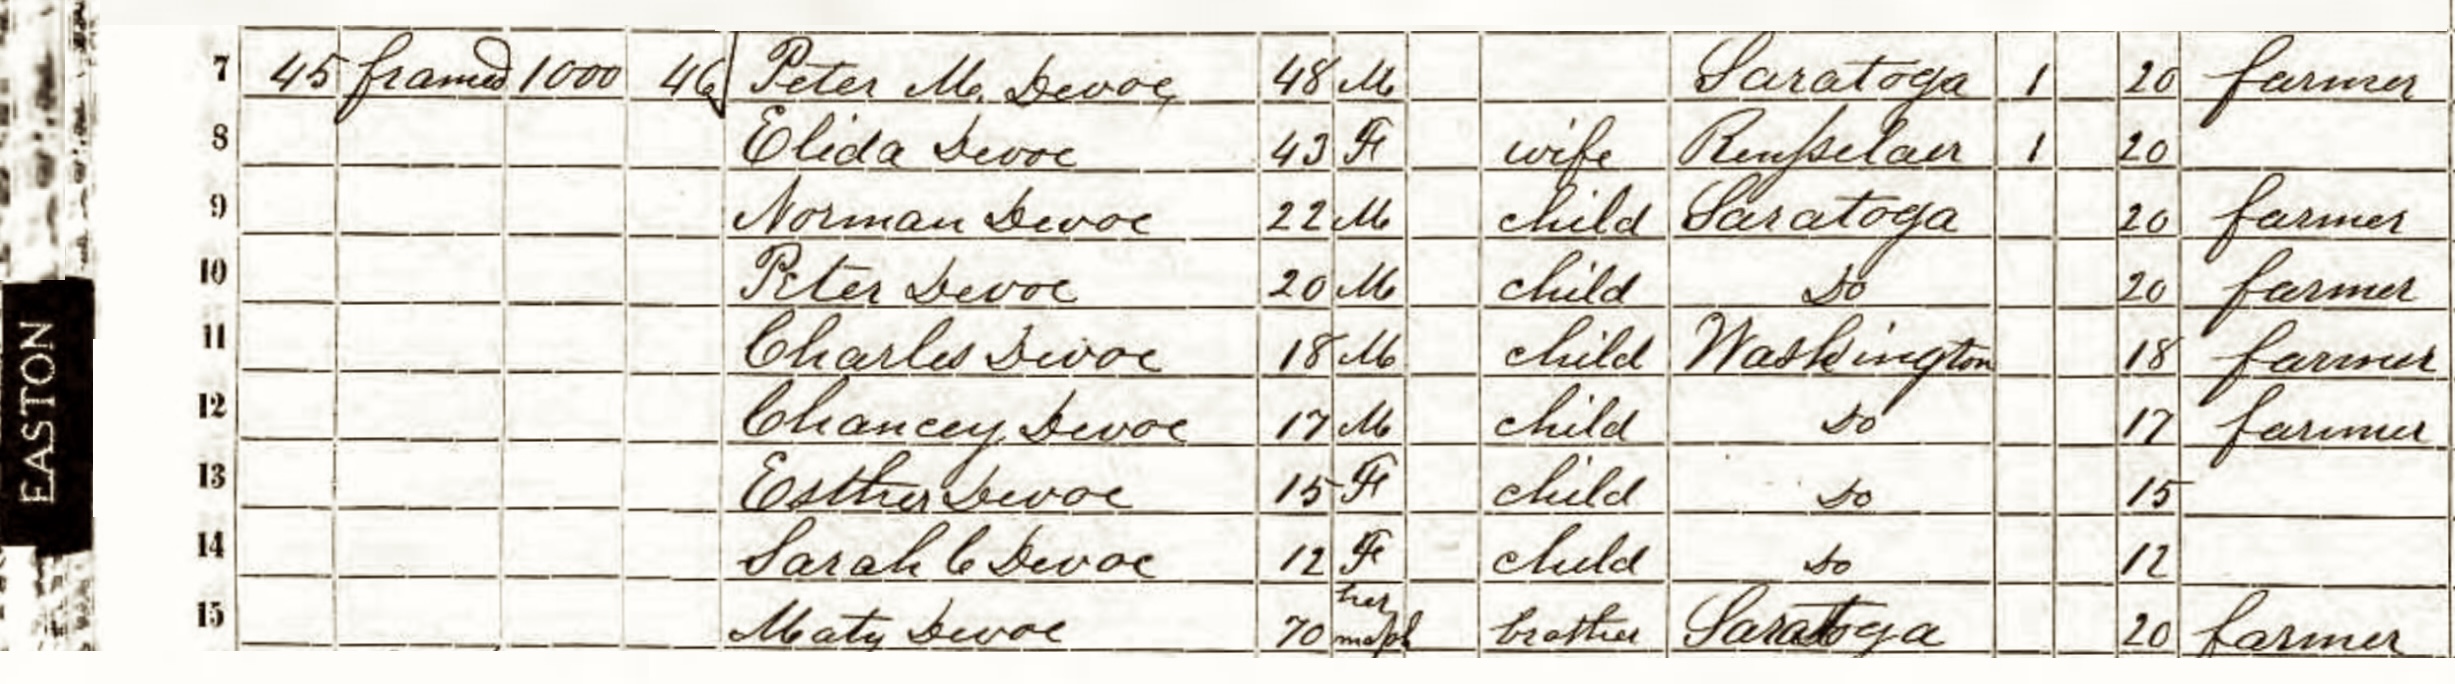 7 45 framed 1000 46 Peter M. Devoe 48 M Saratoga 1 20 farmer
8 Elida Devoe 43 F wife Rensselaer 1 20
9 Norman Devoe 22 M child Saratoga 20 farmer
10 Peter Devoe 20 M child Do 20 farmer
11 Charles Devoe 18 M child Washington 18 farmer
12 Chancey Devoe 17 M child Do 17 farmer
13 Esther Devoe 15 F child Do 15
14 Sarah C Devoe 12 F child Do 12
15 Maty Devoe 70 her maph brother Saratoga 20 farmer
EASTON